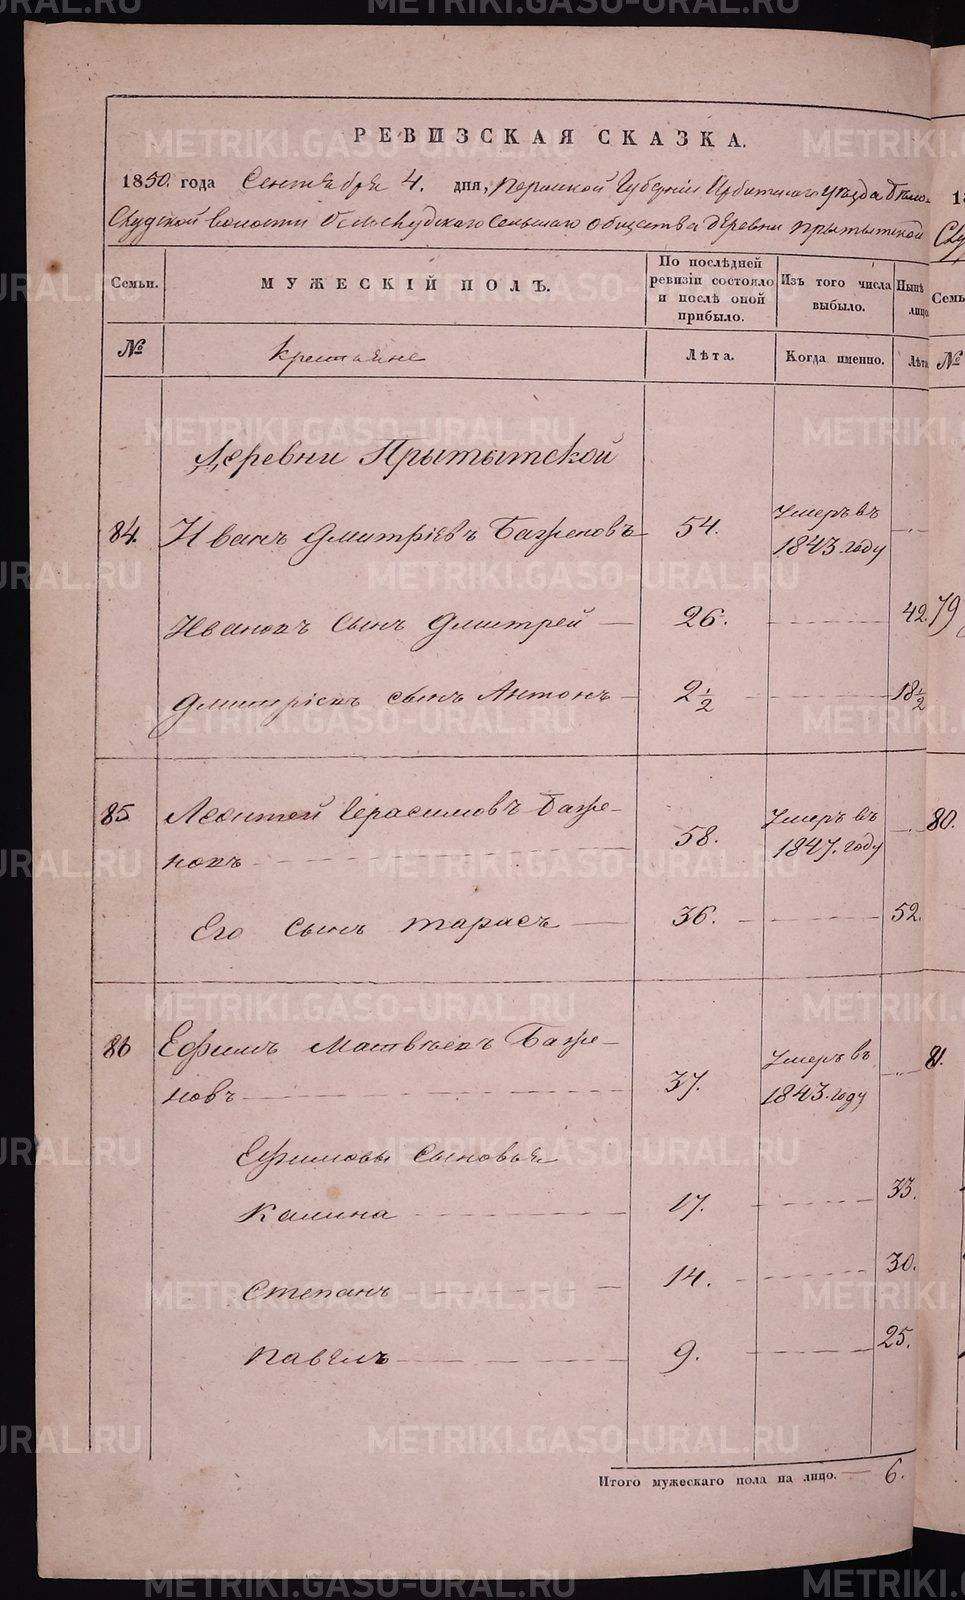 РЕВИЗСКАЯ СКАЗКА.
1850. года Сентября 4. дня, Пермской Губернiи Ирбитскаго уѣзда Бѣло-
Слудской волости Бѣлослудскаго Сельскаго общества деревни Прытытской
Семьи.
МУЖЕСКIЙ ПОЛЪ.
По послѣдней ревизiи состояло и послѣ оной прибыло.
Изъ того числа выбыло.
Нынѣ лицо
№
Крестьяне
Лѣта.
Когда именно.
Лѣта
Деревни Прытытской
84. Иванъ Дмитрiевъ Баженовъ 54. Умеръ въ 1843 году
Ивановъ сынъ Дмитрей 26. 42.
Дмитрiевъ сынъ Антонъ 2½ 18½
85 Леонтей Герасимовъ Баже-
новъ 58. Умеръ въ 1847. году
Его сынъ Тарасъ 36. 52.
86 Ефимъ Матвѣевъ Баже-
новъ 37. Умеръ въ 1843. году
Ефимовы сыновья
Калина 17. 33.
Степанъ 14. 30.
Павелъ 9. 25.
Итого мужескаго пола на лицо. 6.
Семь
№
79
80.
81.
METRIKI.GASO-URAL.RU